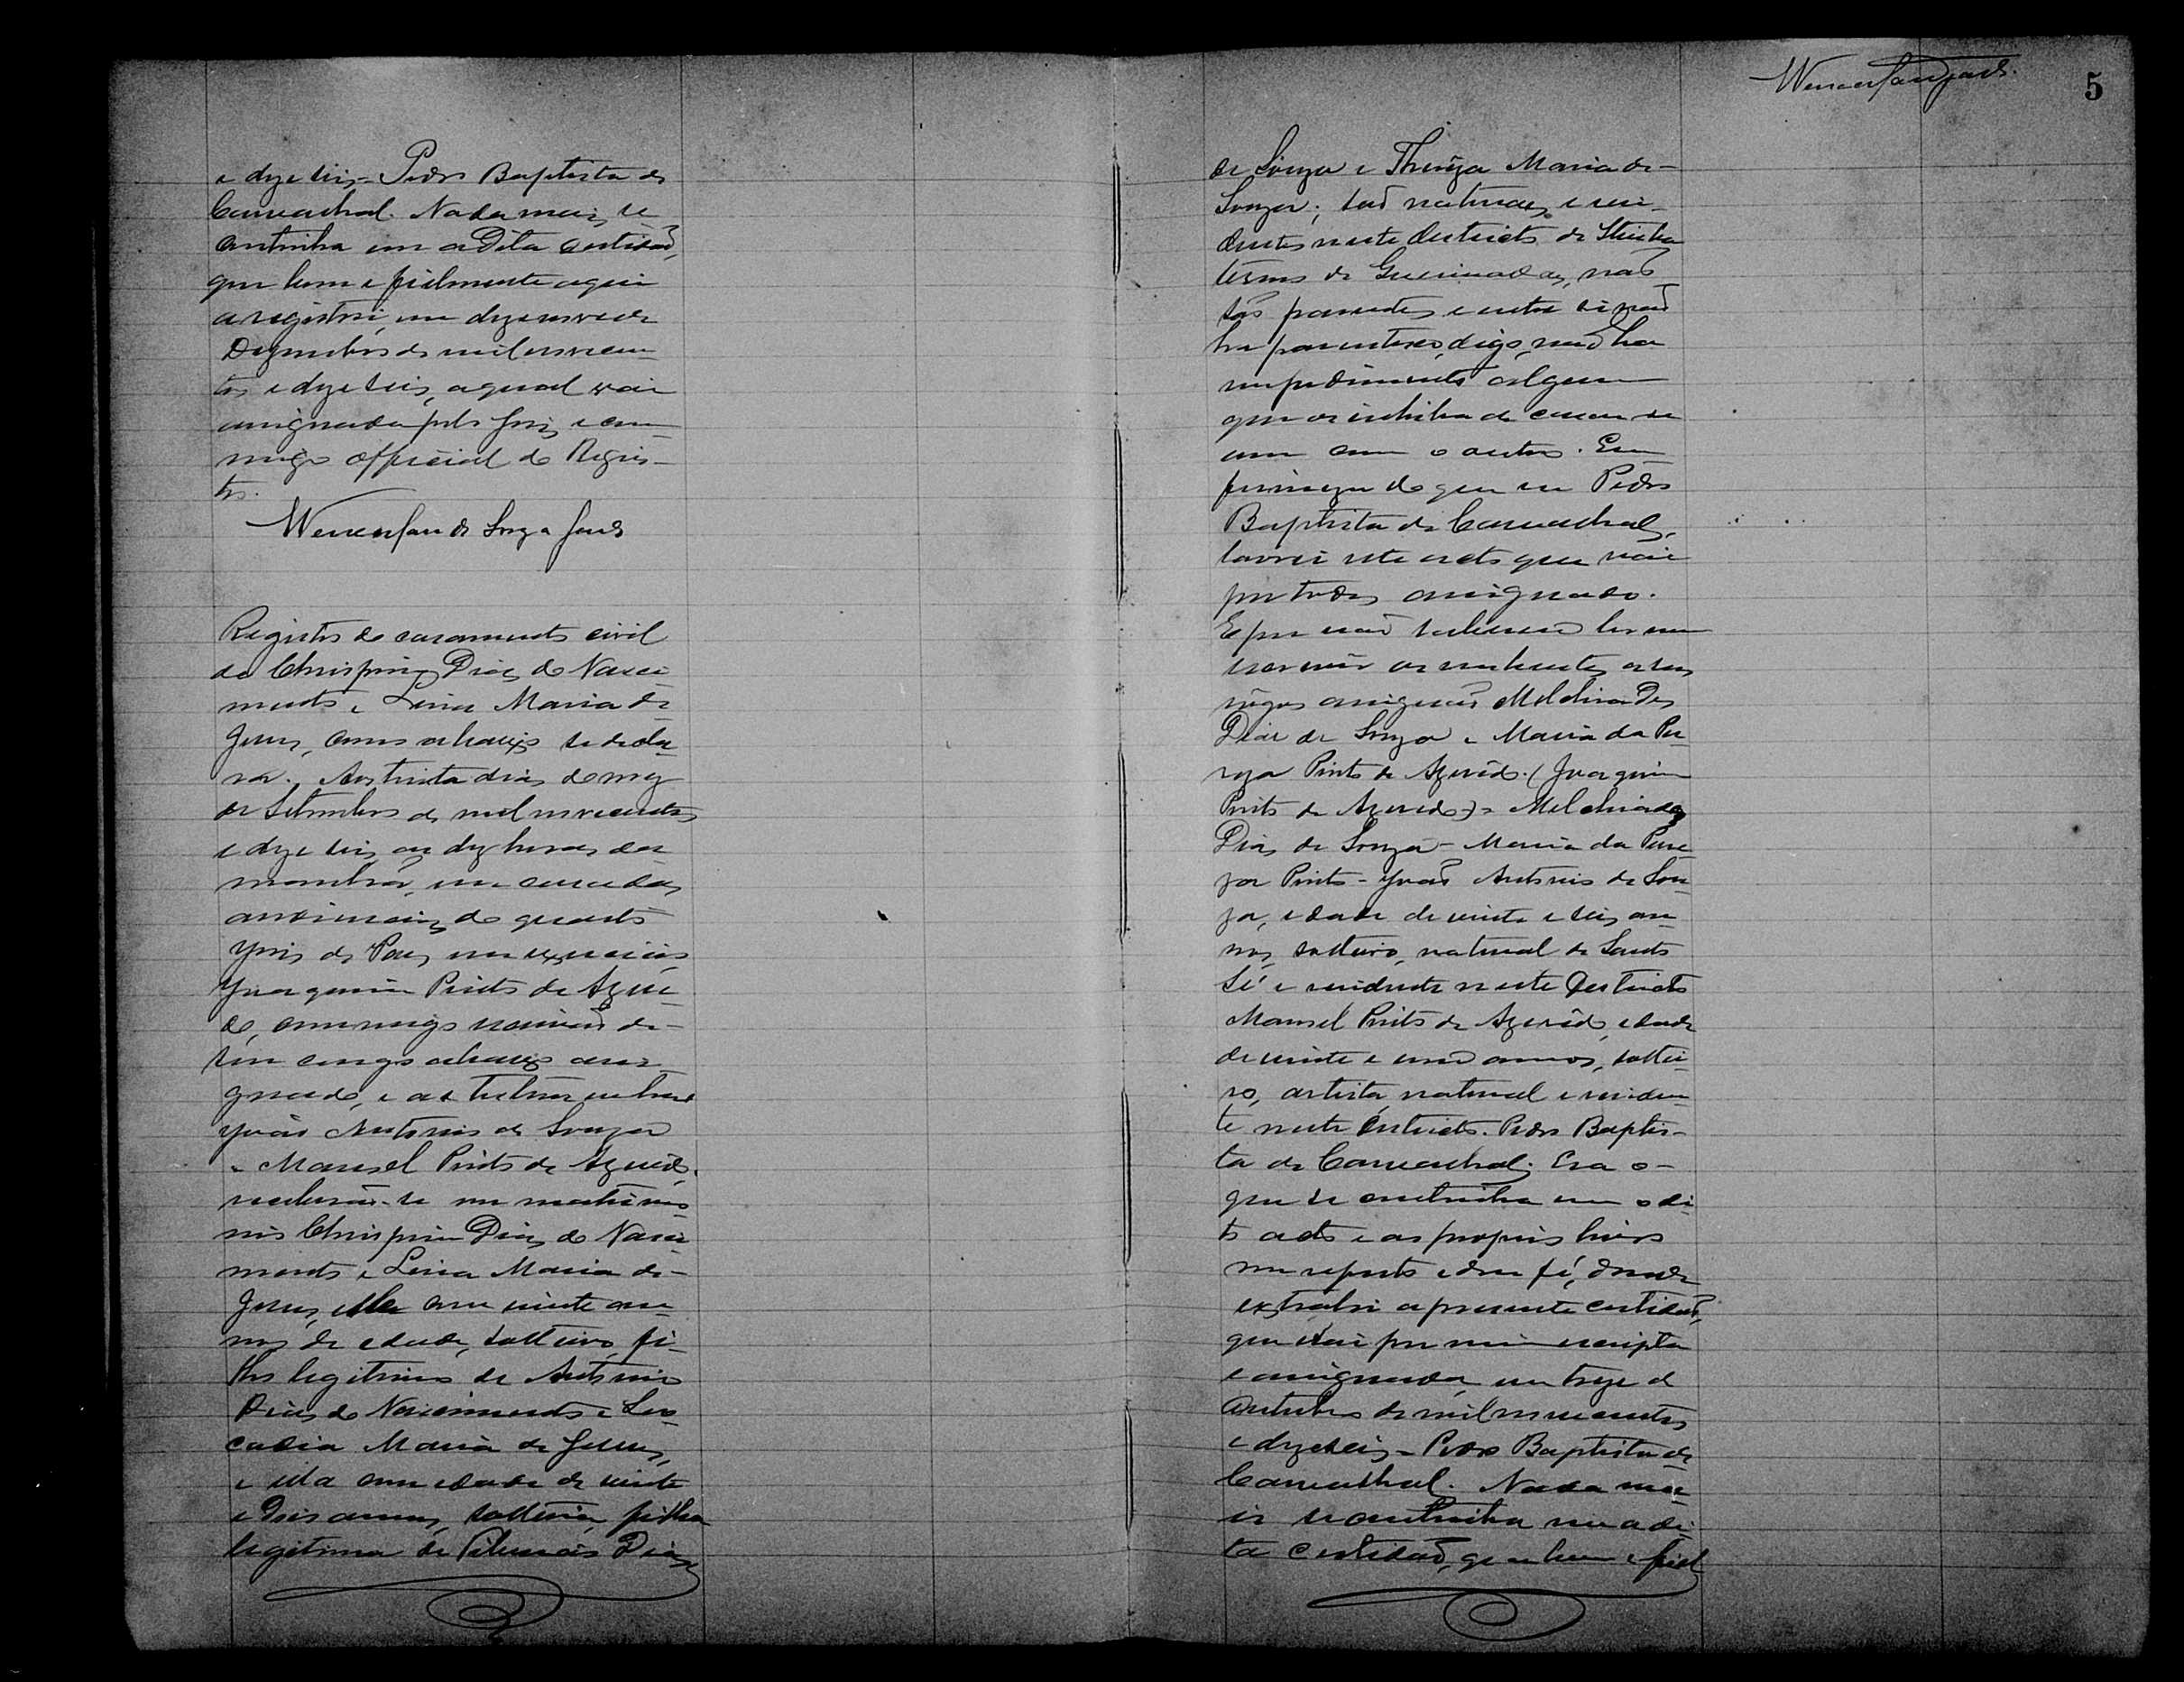 e dezeseis - Pedro Baptista de
Carvalhal. Nada mais se
continha em a dita certidaõ,
que bem e fielmente aqui
a registrei, em dezenove de
Dezembro de mil novecen-
tos e dezeseis, a qual vai
assignada pelo Juiz e com-
migo official do Regis-
tro.
de Souza
Registro do casamento civil
de Chrispim Dias do Nasci-
mento e Maria de
Jesus, como abaixo se decla-
ra. Aos trinta dias do mez
de Setembro de mil novecentos
e dezeseis, as dez horas da
manhã, em casa das
audiencias do quarto
Juiz de Paz em exercicio
Joaquim Pinto de Azeve-
do, commigo escrivaõ de
seu cargo abaixo assi-
gnado, e as testimunhas
Joaõ Antonio de Souza
e Manoel Pinto de Azevedo,
receberaõ-se em matrimo-
nio Chrispim Dias do Nasci-
mento e Maria de
Jesus, elle com vinte an-
nos de edade, solteiro, fi-
lho legitimo de Antonio
Dias do Nascimento e Leo-
cadia Maria de Jesus,
e ella com edade de vinte
e dois annos, solteira, filha
legitima de Dias
5
de Souza e Thereza Maria de
Souza; saõ naturaes e resi-
dentes neste districto de
termo de Queimadas, naõ
saõ parentes e entre si naõ
ha parentesco, digo, naõ ha
impedimento algum
que os inhiba de casar-se
um com o outro. Em
firmeza do que eu Pedro
Baptista de Carvalhal,
lavrei este acto que vai
por todos assignado.
E por naõ saberem ler nem
escrever os nubentes, a seus
rogos assignaõ Melchiades
Dias de Souza e Maria da Pu-
reza Pinto de Azevêdo. (Joaquim
Pinto de Azevedo) = Melchiades
Dias de Souza - Maria da Pure-
za Pinto - Joaõ Antonio de Sou-
za, edade de vinte e seis an-
nos, solteiro, natural de Santo
Sé e residente neste Districto
Manoel Pinto de Azevêdo, edade
de vinte e um annos, soltei-
ro, artista, natural e residen-
te neste districto. Pedro Baptis-
ta de Carvalhal. Era o
que se continha em o di-
to acto e ao proprio livro
me reporto e dou fé, donde
extrahi a presente certidaõ,
que vai por mim escripta
e assignada, em treze de
Outubro de mil novecentos
e dezeseis - Pedro Baptista de
Carvalhal. Nada ma-
is se continha em a di-
ta certidaõ, que bem e fiel